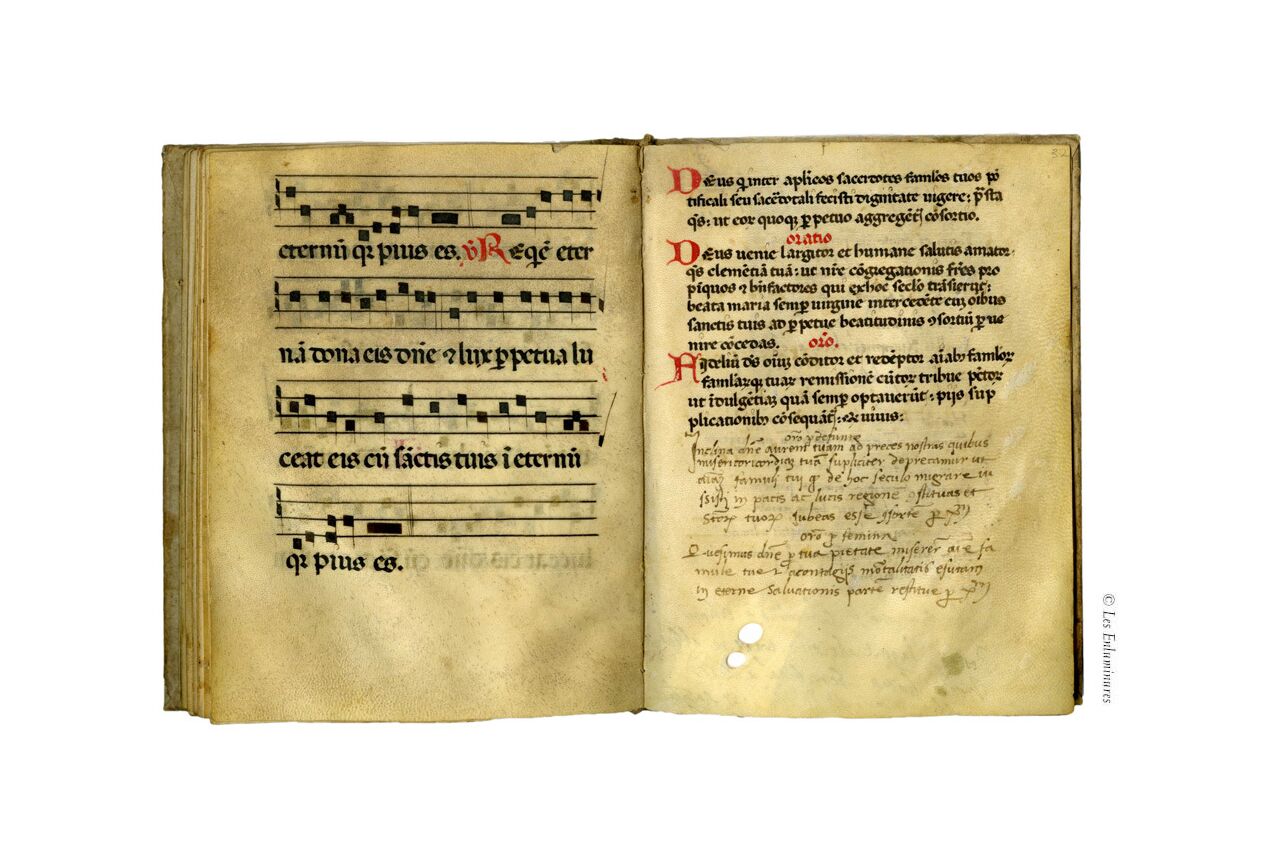 eternũ qr pius es. ℣ REqẽ eter
nã dona eis dñe ⁊ lux ꝑpetua lu
ceat eis cũ sãctis tuis ĩ eternũ
qr pius es.
32
DEus q̃ inter apl̃icos sacerdotes faml̃os tuos põ
tificali seu sacẽdotali fecisti dignitate uigere: p̃sta
q̃s: ut eor quoqꝫ ꝑpetuo aggregẽt̃ cõsortio.
oratio
DEus uenie largitor et humane salutis amator.
q̃s clemẽtiã tuã: ut nr̃e cõgregationis fr̃es pro
pĩquos ⁊ bñfactores qui ex hoc secl̃o trãsierũt:
beata maria semꝑ uirgine intercedẽte cuꝫ oĩbus
sanctis tuis ad ꝑpetue beatitudinis ꝯsortiũ ꝑue
nire cõcedas. orõ.
Fideliũ ds̃ oĩuꝫ cõditor et redẽptor aĩabꝫ faml̃or
famlarqꝫ tuar remissionẽ cũctor tribue pctõr
ut ĩdulgẽtiaꝫ quã semꝑ optauerũt: pijs sup
plicationibꝫ cõsequãt̃: Qui uiuis:
orõ ꝑ defuncto
Inclina dñe aurem tuam ad preces nostras quibus
misericoricordiaꝫ tuã supliciter deprecamur ut
aĩaꝫ famuli tui qͣ de hoc seculo migrare iu
ssisti in pacis ac lucis regionẽ ꝯstituas et
Sctõꝝ tuoꝝ iubeas esse ꝯsortẽ ꝑ xp̃m
orõ ꝑ femina
Quesumas dñe ꝑ tua pietate miserer̃ aĩe fa
mule tue ⁊ a contagijs mortalitatis exutam
in eterne saluationis partẽ restitue ꝑ xp̃m
© Les Enluminures